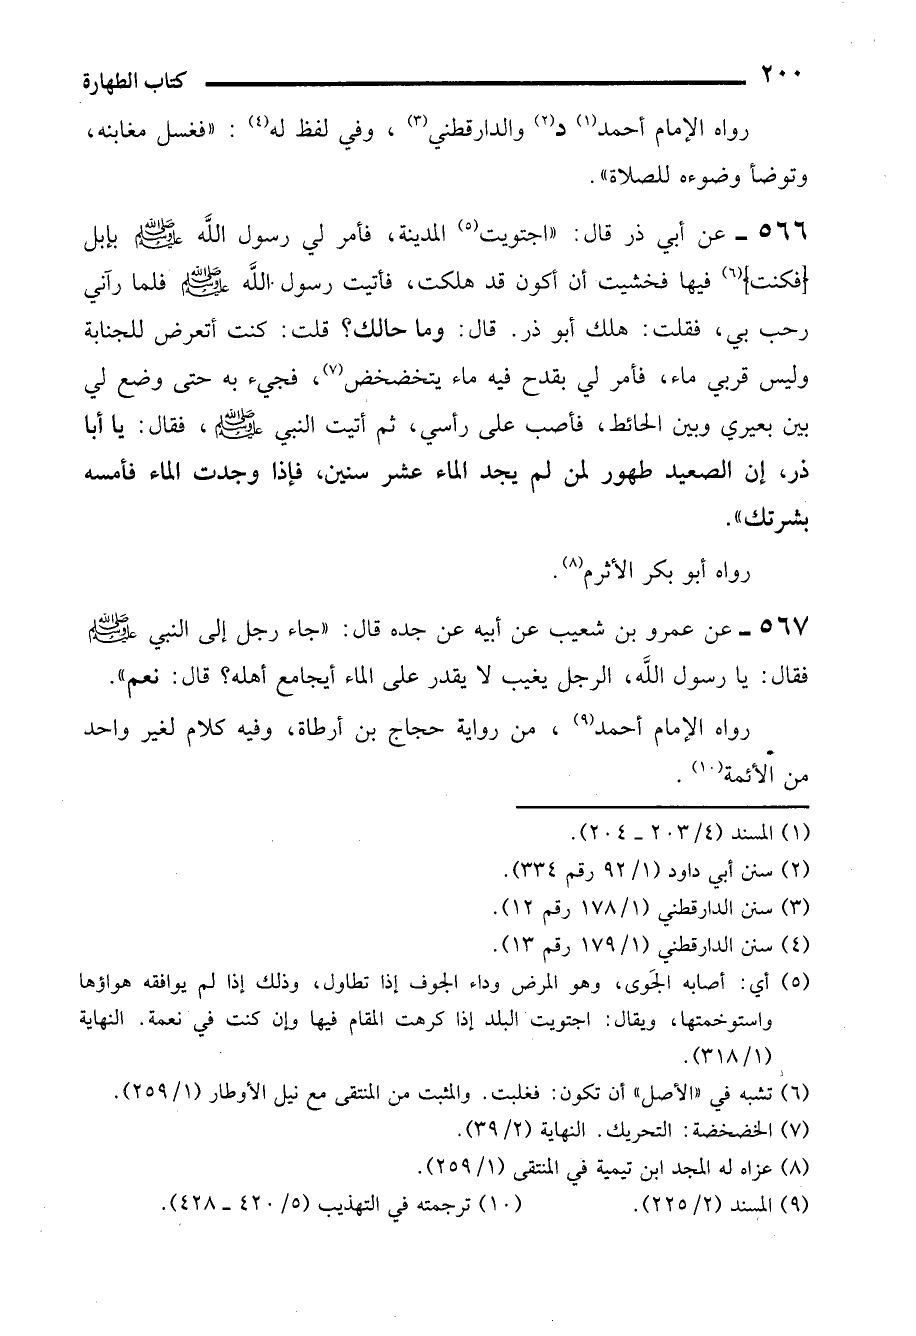 ٢٠٠ كتاب الطهارة
رواه الإمام أحمد(١) د(٢) والدارقطني(٣) ، وفي لفظ له(٤) : «فغسل مغابنه،
وتوضأ وضوءه للصلاة».
٥٦٦ ـ عن أبي ذر قال: «اجتويت(٥) المدينة، فأمر لي رسول اللَّه ﷺ بإبل
{فكنت}(٦) فيها فخشيت أن أكون قد هلكت، فأتيت رسول اللَّه ﷺ فلما رآني
رحب بي، فقلت: هلك أبو ذر. قال: وما حالك؟ قلت: كنت أتعرض للجنابة
وليس قربي ماء، فأمر لي بقدح فيه ماء يتخضخض(٧)، فجيء به حتى وضع لي
بين بعيري وبين الحائط، فأصب على رأسي، ثم أتيت النبي ﷺ ، فقال: يا أبا
ذر، إن الصعيد طهور لمن لم يجد الماء عشر سنين، فإذا وجدت الماء فأمسه
بشرتك».
رواه أبو بكر الأثرم(٨).
٥٦٧ ـ عن عمرو بن شعيب عن أبيه عن جده قال: «جاء رجل إلى النبي ﷺ
فقال: يا رسول اللَّه، الرجل يغيب لا يقدر على الماء أيجامع أهله؟ قال: نعم».
رواه الإمام أحمد(٩) ، من رواية حجاج بن أرطاة، وفيه كلام لغير واحد
من الأئمة(١٠) .
(١) المسند (٤/ ٢٠٣ ـ ٢٠٤).
(٢) سنن أبي داود (١/ ٩٢ رقم ٣٣٤).
(٣) سنن الدارقطني (١/ ١٧٨ رقم ١٢).
(٤) سنن الدارقطني (١/ ١٧٩ رقم ١٣).
(٥) أي: أصابه الجَوى، وهو المرض وداء الجوف إذا تطاول، وذلك إذا لم يوافقه هواؤها
واستوخمتها، ويقال: اجتويت البلد إذا كرهت المقام فيها وإن كنت في نعمة. النهاية
(١/ ٣١٨).
(٦) تشبه في «الأصل» أن تكون: فغلبت. والمثبت من المنتقى مع نيل الأوطار (١/ ٢٥٩).
(٧) الخضخضة: التحريك. النهاية (٢/ ٣٩).
(٨) عزاه له المجد ابن تيمية في المنتقى (١/ ٢٥٩).
(٩) المسند (٢/ ٢٢٥). (١٠) ترجمته في التهذيب (٥/ ٤٢٠ ـ ٤٢٨).